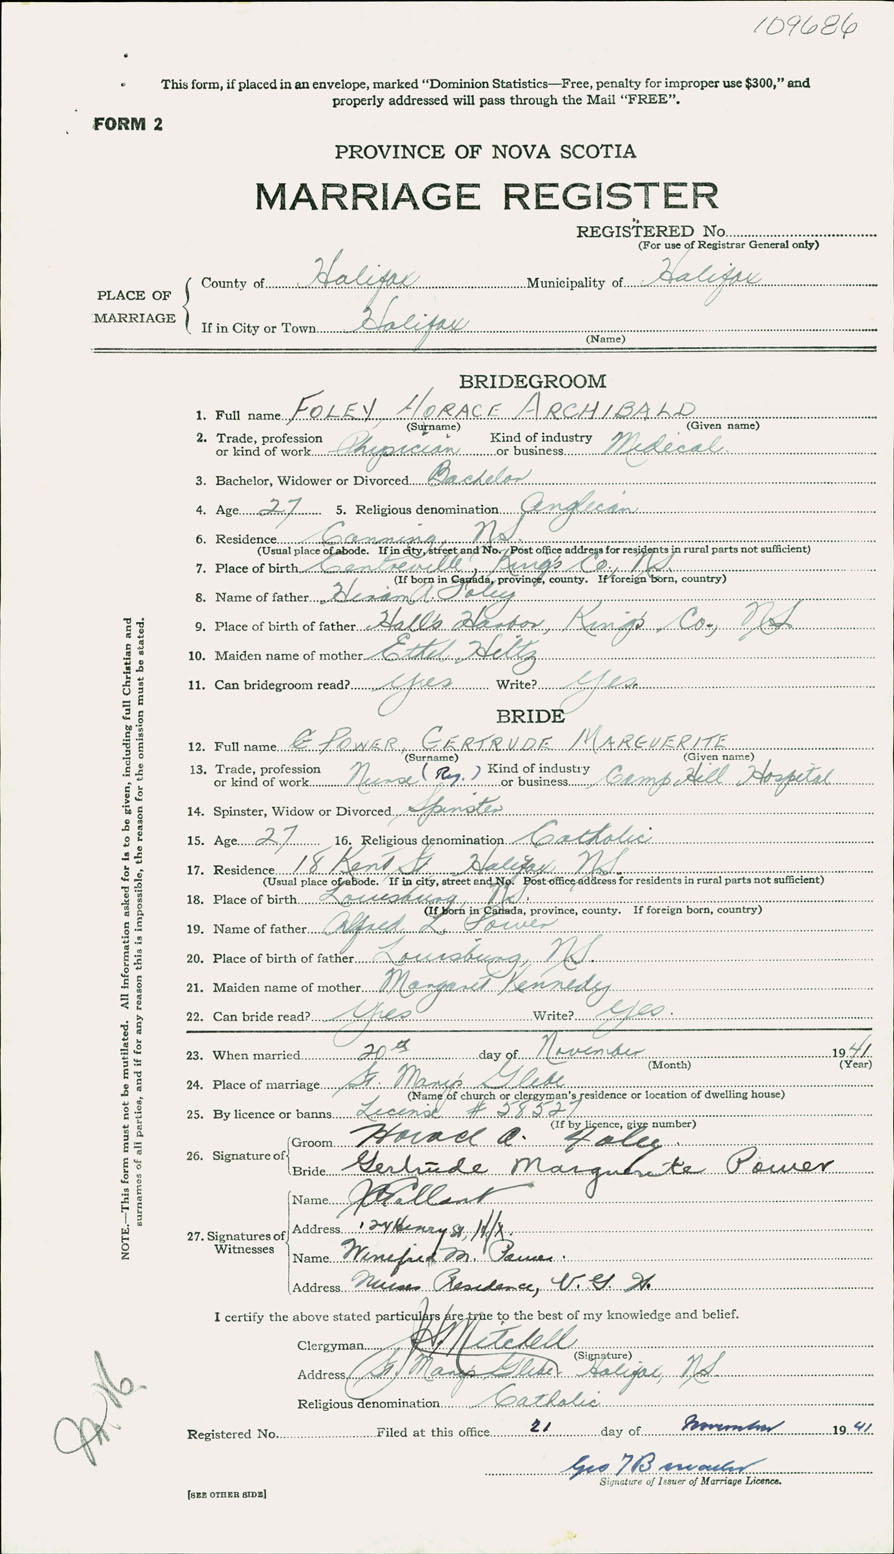 109686
This form, if placed in an envelope, marked “Dominion Statistics—Free, penalty for improper use $300,” and
properly addressed will pass through the Mail “FREE”.
FORM 2
PROVINCE OF NOVA SCOTIA
MARRIAGE REGISTER
REGISTERED No.
(For use of Registrar General only)
PLACE OF MARRIAGE
County of Halifax Municipality of Halifax
If in City or Town Halifax
(Name)
BRIDEGROOM
1. Full name FOLEY, HORACE ARCHIBALD
(Surname) (Given name)
2. Trade, profession or kind of work Physician Kind of industry or business Medical.
3. Bachelor, Widower or Divorced Bachelor
4. Age 27 5. Religious denomination Anglican
6. Residence Canning, NS.
(Usual place of abode. If in city, street and No. Post office address for residents in rural parts not sufficient)
7. Place of birth Centreville, Kings Co., NS
(If born in Canada, province, county. If foreign born, country)
8. Name of father Hiram A. Foley
9. Place of birth of father Halls Harbor, Kings Co., NS
10. Maiden name of mother Ethel Hiltz
11. Can bridegroom read? Yes Write? Yes.
BRIDE
12. Full name POWER, GERTRUDE MARGUERITE
(Surname) (Given name)
13. Trade, profession or kind of work Nurse (Reg.) Kind of industry or business Camp Hill Hospital
14. Spinster, Widow or Divorced Spinster
15. Age 27 16. Religious denomination Catholic
17. Residence 18 Kent St. Halifax NS.
(Usual place of abode. If in city, street and No. Post office address for residents in rural parts not sufficient)
18. Place of birth Louisburg, NS.
(If born in Canada, province, county. If foreign born, country)
19. Name of father Alfred L. Power
20. Place of birth of father Louisburg, NS.
21. Maiden name of mother Margaret Kennedy
22. Can bride read? Yes Write? Yes.
23. When married 20th day of November 1941
(Month) (Year)
24. Place of marriage St. Mary's Glebe
(Name of church or clergyman's residence or location of dwelling house)
25. By licence or banns License # 58527
(If by licence, give number)
26. Signature of
Groom Horace A. Foley.
Bride Gertrude Marguerite Power
27. Signatures of Witnesses
Name
Address 124 Henry St, Hfx.
Name Winefred M. Power.
Address Nurses Residence, V. G. H.
I certify the above stated particulars are true to the best of my knowledge and belief.
Clergyman Mitchell
(Signature)
Address St. Mary's Glebe Halifax, NS.
Religious denomination Catholic
Registered No. Filed at this office 21 day of November 1941
Geo
Signature of Issuer of Marriage Licence.
[SEE OTHER SIDE]
NOTE.—This form must not be mutilated. All information asked for is to be given, including full Christian and
surnames of all parties, and if for any reason this is impossible, the reason for the omission must be stated.